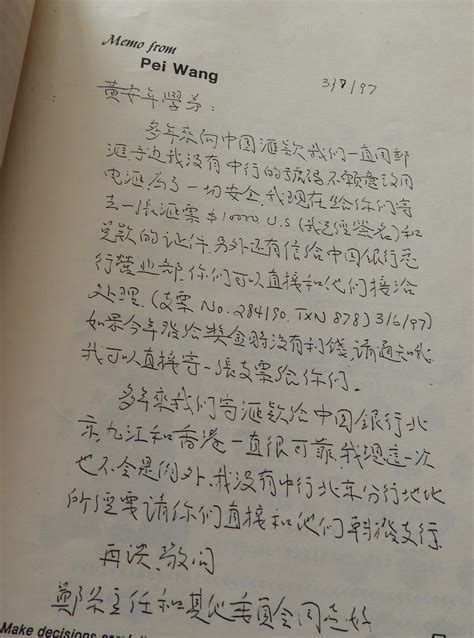 Memo from
Pei Wang
3/8/97
黄安年學弟：
多年來向中国滙款我们一直用郵
滙寄边我没有中行的號码不願意改用
电滙为了一切安全，我現在給你们寄
去一張滙票 $10000 U.S (我已經签名)和
兑款的证件.另外还有信给中国銀行总
行營业部.你们可以直接和他们接洽
处理. (支票 No. 284190. TXN 878) 3/6/97)
如果今年发给奖金時没有利錢,请通知我
我可以直接寄一張支票给你们.
多年來我们寄滙款给中国銀行北
京九江和香港一直很可靠.我想這一次
也不会是例外.我没有中行北京分行地址
所以要请你们直接和他们联發支行.
再谈 敬问
鄭 主任和其他委員会同志好
Make decisions